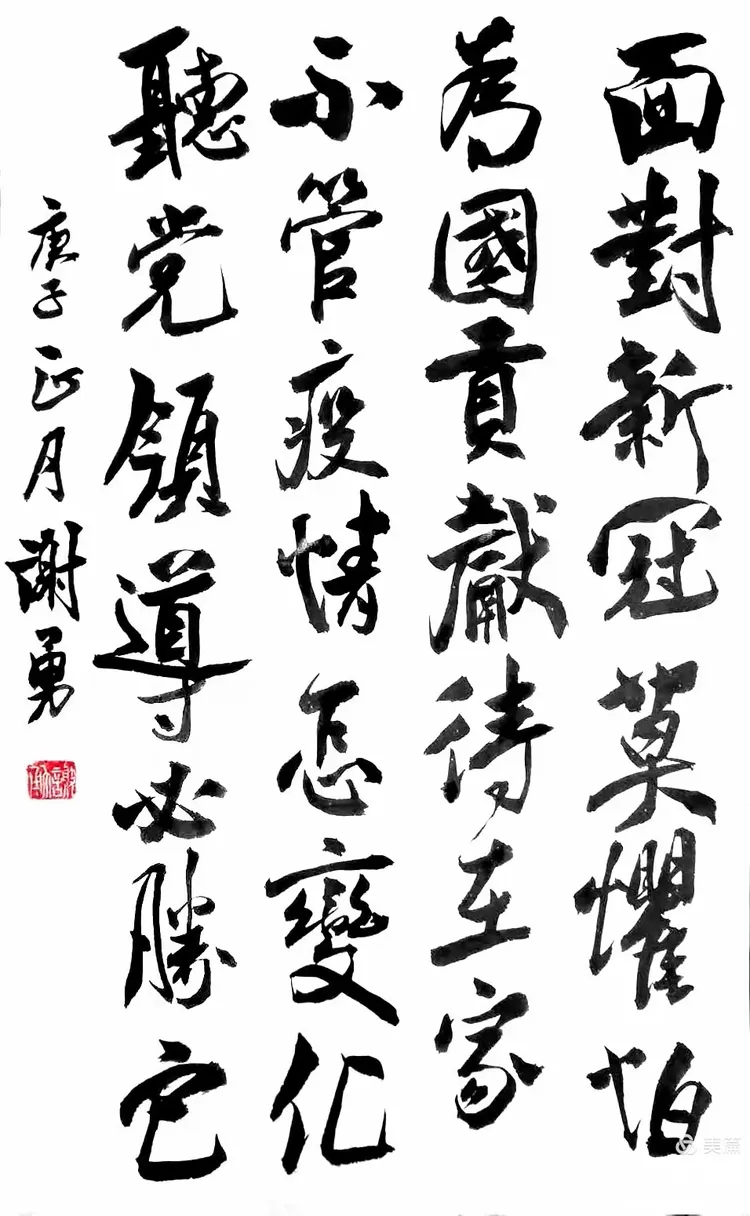 面對新冠莫懼怕
為國貢獻待在家
不管疫情怎變化
聽党領導必勝它
庚子正月謝勇
美篇